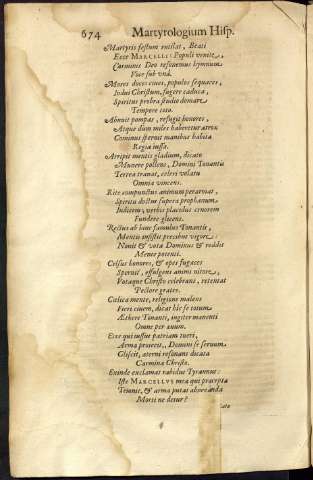 674 Martyrologium Hisp.
Martyris festum rutilat, Beati
Ecce MARCELLI: Populi venite,
Carminis Deo resonemus hymnum
Voce sub una.
Mores docet cives, populos sequaces,
Indus Christum, fugere caduca,
Spiritus probra studio domare
Tempore toto.
Abnuit pompas, refugit honores,
Atque dum miles haberetur atrox
Cominus spernit manibus habita
Regia iussa.
Arripit mentis gladium, dicato
Munere pollens, Domini Tonantis
Terrea tranat, celeri volatu
Omnia vincens.
Rite compunctus animum perarvat,
Spiritu doctus supera prophanum
Indicem, verbis placidus cruorem
Fundere gliscens.
Rectus ab hinc famulus Tonantis,
Mentis insistit precibus vigore,
Novit & vota Dominus & reddit
Mente potenti.
Celsus honores, & opes fugaces
Spernit, effulgens animi nitore,
Votaque Christo celebrans, retentat
Pectore grates.
Cælica mente, religione malens
Fieri civem, dicat hic se totum
Æthere Tonanti, iugiter manenti
Omne per ævum.
Ecce qui iussus patriam tueri,
Arma proiecit, Domini se servum
Gliscit, æterni resonans dicata
Carmina Christo.
Exinde exclamat rabidus Tyrannus:
Iste MARCELLVS mea qui præcepta
Temnit, & arma putat abhorrenda
Morti ne detur?